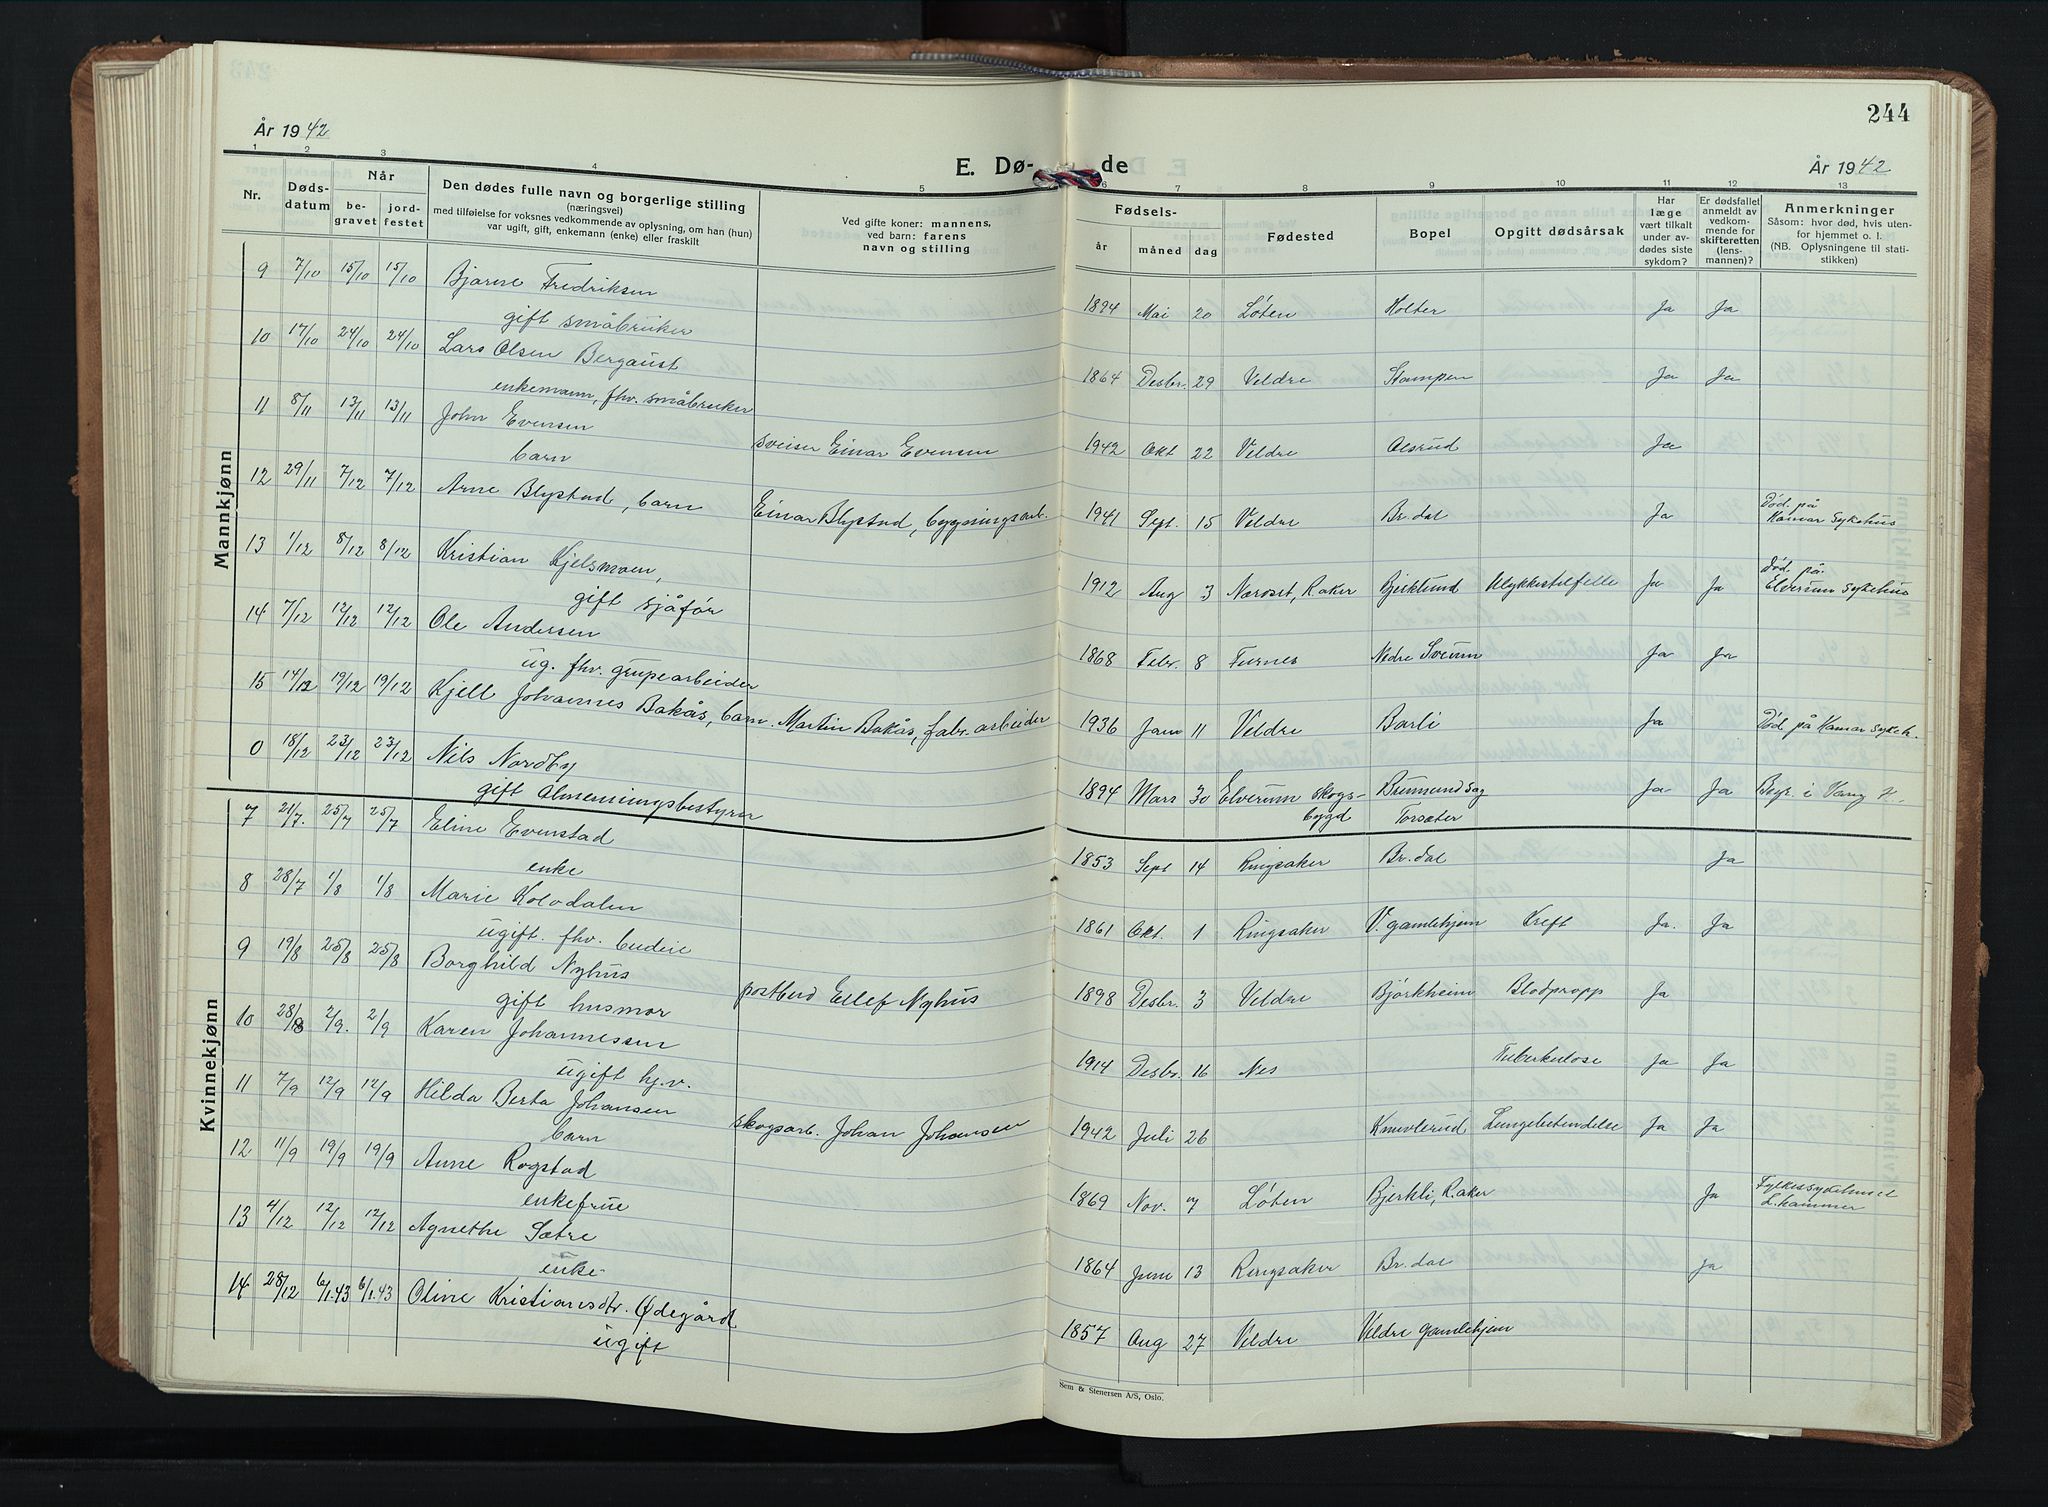 244
År 1942
E. Dø-de
År 1942
1 2 3 4 5 6 7 8 9 10 11 12 13
Nr.
Døds-
datum
Når
be-
gravet
jord-
festet
Den dødes fulle navn og borgerlige stilling
(næringsvei)
med tilføielse for voksnes vedkommende av oplysning, om han (hun)
var ugift, gift, enkemann (enke) eller fraskilt
Ved gifte koner: mannens,
ved barn: farens
navn og stilling
Fødsels-
år
måned
dag
Fødested
Bopel
Opgitt dødsårsak
Har
læge
vært tilkalt
under av-
dødes siste
sykdom?
Er dødsfallet
anmeldt av
vedkom-
mende for
skifteretten
(lens-
mannen)?
Anmerkninger
Såsom: hvor død, hvis uten-
for hjemmet o. l.
(NB. Oplysningene til stati-
stikken)
Mannkjønn
9 7/10 15/10 15/10 Bjarne Fredriksen
gift småbruker 1894 Mai 20 Løten Holter Ja Ja
10 17/10 24/10 24/10 Lars Olsen Bergaust
enkemann, fhv. småbruker 1864 Desbr. 29 Veldre Stampen Ja Ja
11 8/11 13/11 13/11 John Evensen
barn sveiser Einar Evensen 1942 Okt 22 Veldre Olsrud Ja
12 29/11 7/12 7/12 Arne Blystad, barn Einar Blystad, bygningsarb. 1941 Sept. 15 Veldre Br.dal Ja Død på
Hamar sykehus
13 1/12 8/12 8/12 Kristian Kjelsmoen,
gift sjåfør 1912 Aug 3 Næroset, Raker Bjerklund Ulykkestilfelle Ja Ja Død på
Elverum sykehus
14 7/12 12/12 12/12 Ole Andersen
ug. fhv. grupearbeider 1868 Febr. 8 Furnes Nedre Sveum Ja Ja
15 14/12 19/12 19/12 Kjell Johannes Bakås, barn. Martin Bakås, fabr. arbeider 1936 Jan 11 Veldre Barli Ja Død på Hamar sykeh.
0 18/12 23/12 23/12 Nils Nordby
gift Almenningsbestyrer 1894 Mars 30 Elverum skogs-
bygd Brumund Sag
Torsæter Ja Ja Begr. i Vang
Kvinnekjønn
7 21/7. 25/7 25/7 Eline Evenstad
enke 1853 Sept 14 Ringsaker Br.dal Ja
8 28/7 1/8 1/8 Marie Kolodalen
ugift. fhv. budeie 1861 Okt. 1 Ringsaker V. gamlehjem Kreft Ja. Ja
9 19/8 25/8 25/8 Borghild Nyhus
gift husmor postbud Ellef Nyhus 1898 Desbr. 3 Veldre Bjørkheim Blodpropp Ja
10 28/8 2/9. 2/9 Karen Johannessen
ugift hj.v. 1914 Desbr. 16 Nes Tuberkulose Ja Ja
11 7/9 12/9 12/9 Hilda Berta Johansen
barn skogsarb. Johan Johansen 1942 Juli 26 Knuvlerud Lungebetendelse Ja Ja
12 11/9 19/9 19/9 Anne Rogstad
enkefrue 1869 Nov. 7 Løten Bjerkli, R.aker Ja Fylkessykehuset
L.hammer
13 4/12 12/12 12/12 Agnethe Sætre
enke 1864 Juni 13 Ringsaker Br.dal Ja
14 28/12 6/1.43 6/1.43 Oline Kristiansdtr. Ødegård
ugift 1857 Aug 27 Veldre Veldre gamlehjem
Sem & Stenersen A/S, Oslo.